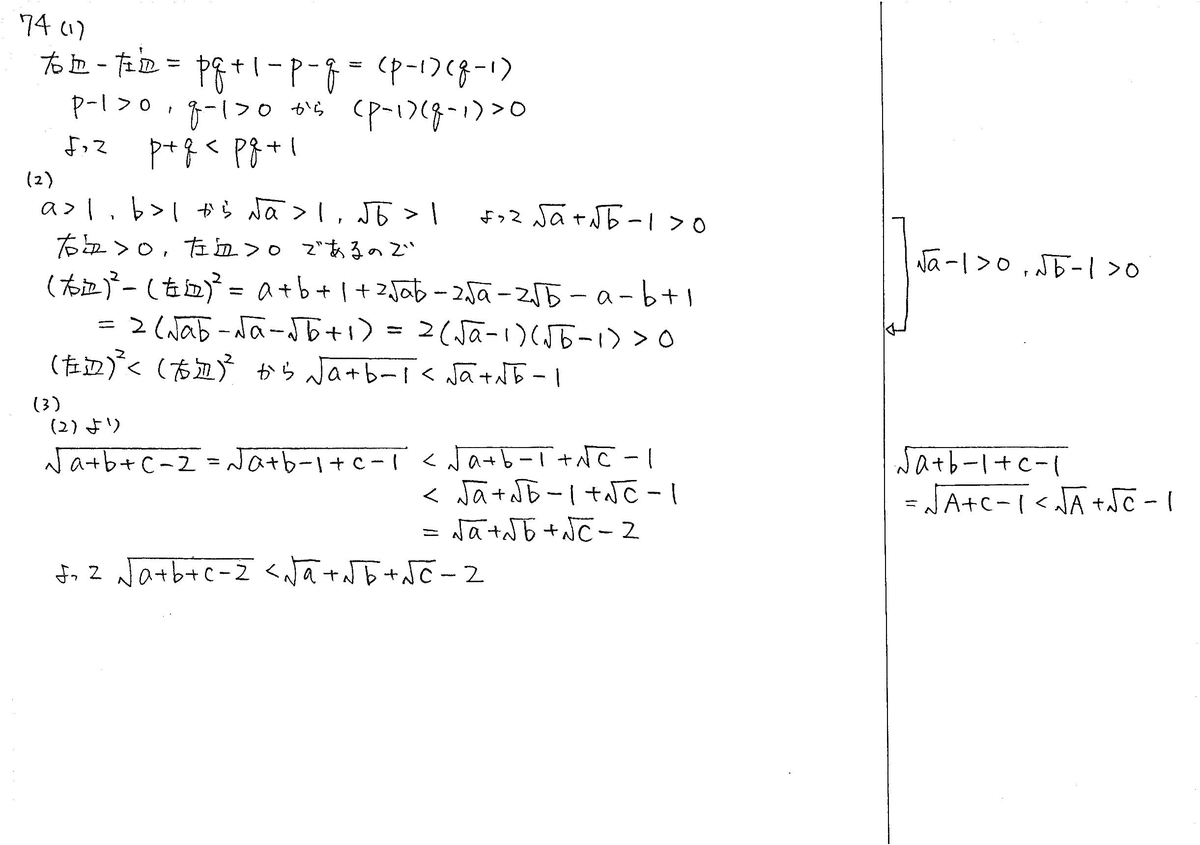 74 (1)
右辺 - 左辺 = pq+1-p-q = (p-1)(q-1)
p-1>0, q-1>0 から (p-1)(q-1)>0
よって p+q < pq+1
(2)
a>1, b>1 から √a >1, √b >1 よって √a+√b-1>0
右辺>0, 左辺>0 であるので
(右辺)²-(左辺)² = a+b+1+2√ab-2√a-2√b-a-b+1
= 2(√ab-√a-√b+1) = 2(√a-1)(√b-1) > 0
(左辺)² < (右辺)² から √(a+b-1) < √a+√b-1
(3)
(2)より
√(a+b+c-2) = √(a+b-1+c-1) < √(a+b-1)+√c-1
< √a+√b-1+√c-1
= √a+√b+√c-2
よって √(a+b+c-2) < √a+√b+√c-2
√a-1>0, √b-1>0
√(a+b-1+c-1)
= √(A+c-1) < √A+√c-1